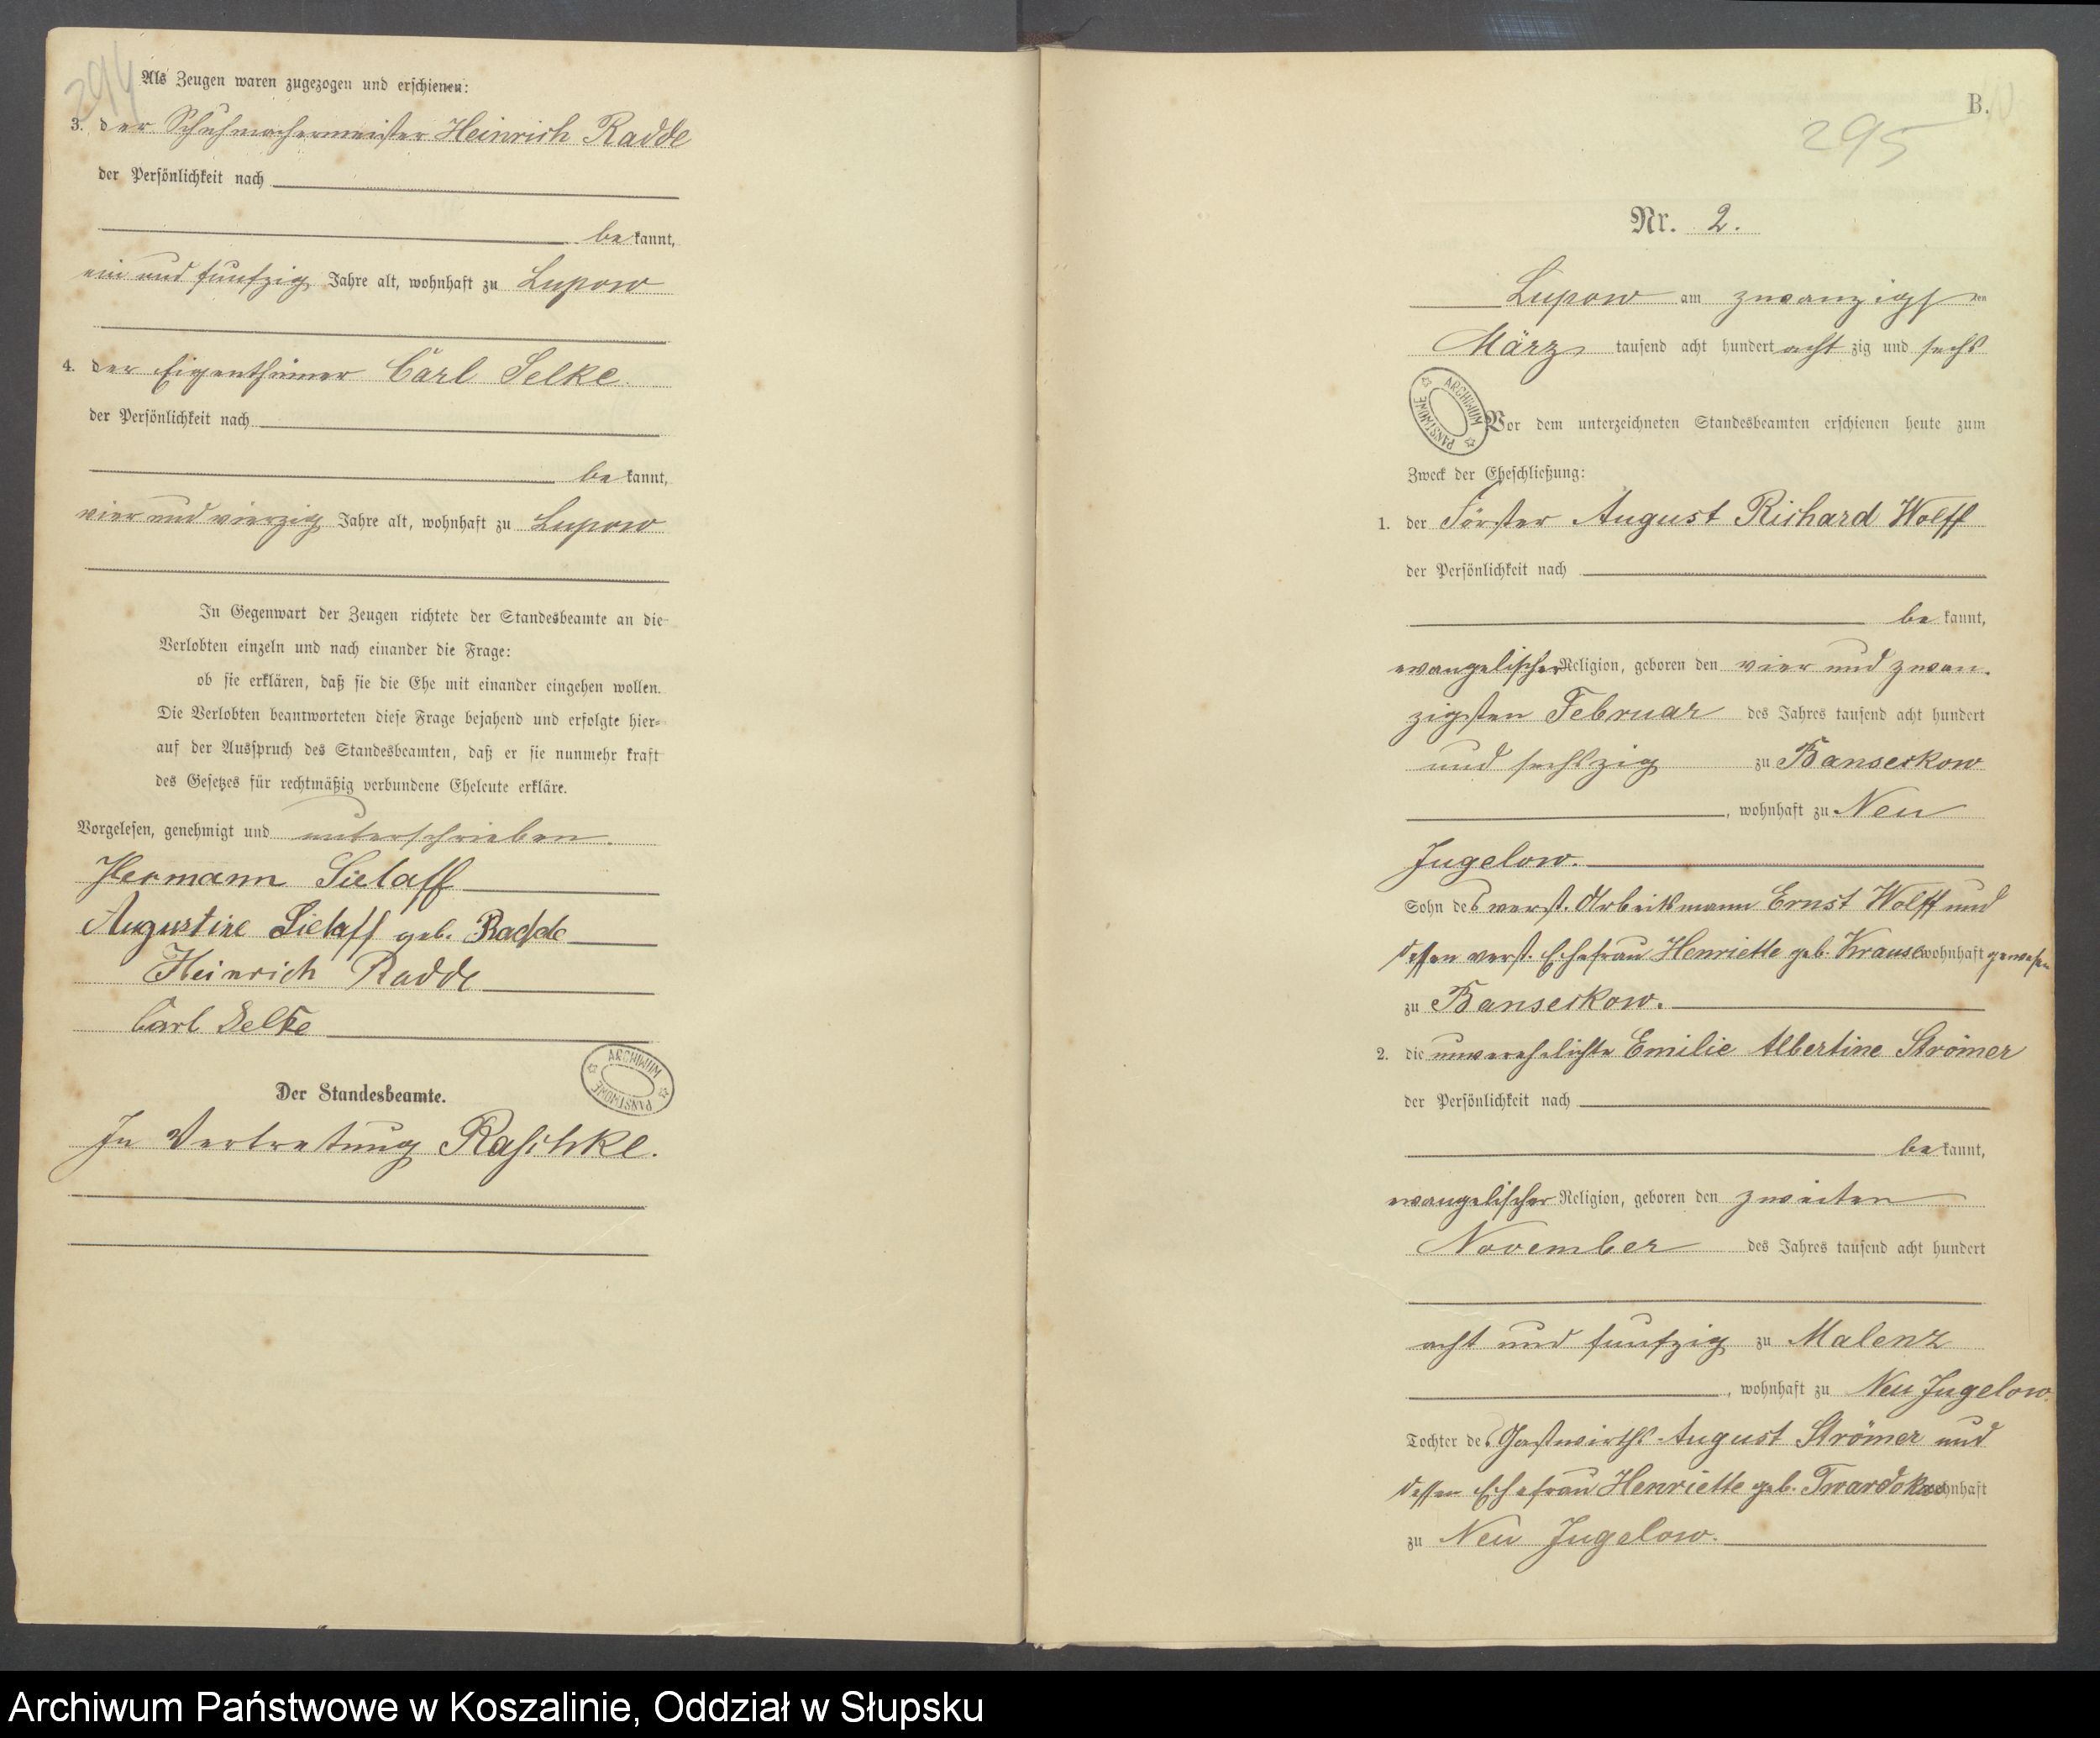 294
Als Zeugen waren zugezogen und erschienen:
3. der Schuhmachermeister Heinrich Radde
der Persönlichkeit nach
be kannt,
ein und funfzig Jahre alt, wohnhaft zu Lupow
4. der Eigenthümer Carl Selke
der Persönlichkeit nach
be kannt,
vier und vierzig Jahre alt, wohnhaft zu Lupow
In Gegenwart der Zeugen richtete der Standesbeamte an die
Verlobten einzeln und nach einander die Frage:
ob sie erklären, daß sie die Ehe mit einander eingehen wollen.
Die Verlobten beantworteten diese Frage bejahend und erfolgte hier-
auf der Ausspruch des Standesbeamten, daß er sie nunmehr kraft
des Gesetzes für rechtmäßig verbundene Eheleute erkläre.
Vorgelesen, genehmigt und unterschrieben.
Hermann Sielaff
Augustine Sielaff geb. Radde
Heinrich Radde
Carl Selke
ARCHIWUM PAŃSTWOWE
Der Standesbeamte.
In Vertretung Raschke.
B.
295
Nr. 2.
Lupow am zwanzigsten
März tausend acht hundert acht zig und sechs
ARCHIWUM PAŃSTWOWE
Vor dem unterzeichneten Standesbeamten erschienen heute zum
Zweck der Eheschließung:
1. der Förster August Richard Wolff
der Persönlichkeit nach
be kannt,
evangelischer Religion, geboren den vier und zwan-
zigsten Februar des Jahres tausend acht hundert
und sechszig zu Banseskow
, wohnhaft zu Neu
Jugelow.
Sohn des verst. Arbeitsmann Ernst Wolff und
dessen verst. Ehefrau Henriette geb. Krause wohnhaft gewesen
zu Banseskow.
2. die unverehelichte Emilie Albertine Strömer
der Persönlichkeit nach
be kannt,
evangelischer Religion, geboren den zweiten
November des Jahres tausend acht hundert
acht und funfzig zu Malenz
, wohnhaft zu Neu Jugelow.
Tochter des Gastwirths August Strömer und
dessen Ehefrau Henriette geb. wohnhaft
zu Neu Jugelow.
Archiwum Państwowe w Koszalinie, Oddział w Słupsku